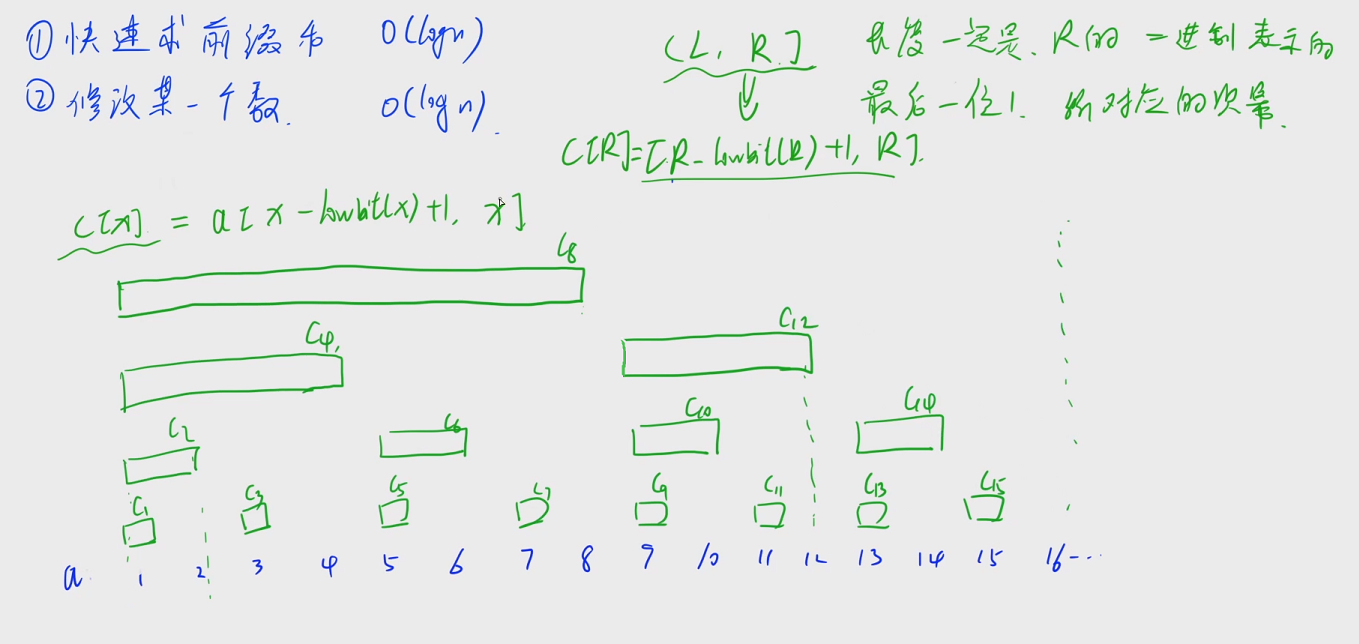 ① 快速求前缀和 O(logn)
② 修改某一个数. O(logn).
(L, R] 长度一定是. R的二进制表示的
最后一位1. 所对应的次幂.
C[R]=[R-lowbit(R)+1, R].
C[x] = a[x-lowbit(x)+1, x]
C8
C4, C12
C2 C6 C10 C14
C1 C3 C5 C7 C9 C11 C13 C15
a. 1 2 3 4 5 6 7 8 9 10 11 12 13 14 15 16---